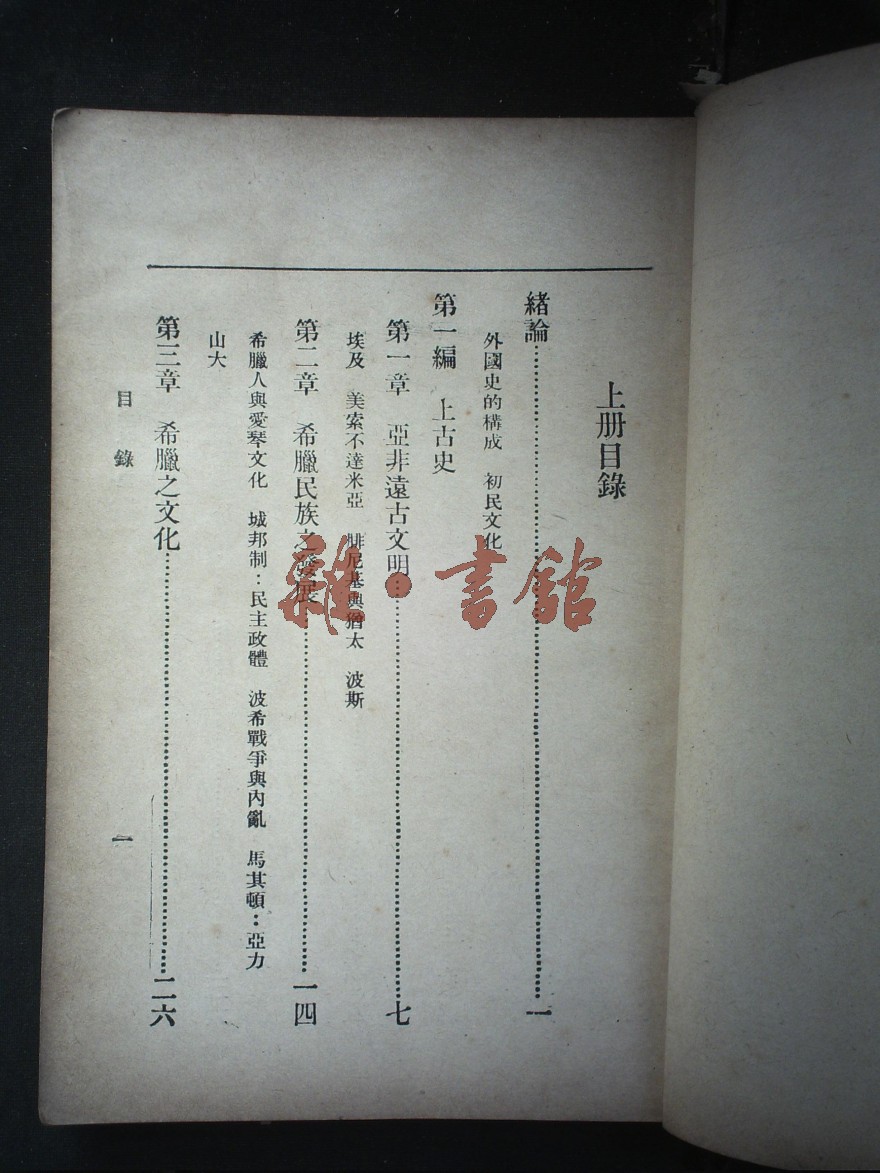 上册目錄
緒論……一
外國史的構成　初民文化
第一編　上古史
第一章　亞非遠古文明……七
埃及　美索不達米亞　腓尼基與猶太　波斯
第二章　希臘民族之發展……一四
希臘人與愛琴文化　城邦制：民主政體　波希戰爭與內亂　馬其頓：亞力
山大
第三章　希臘之文化……二六
目錄
一
雜·書館